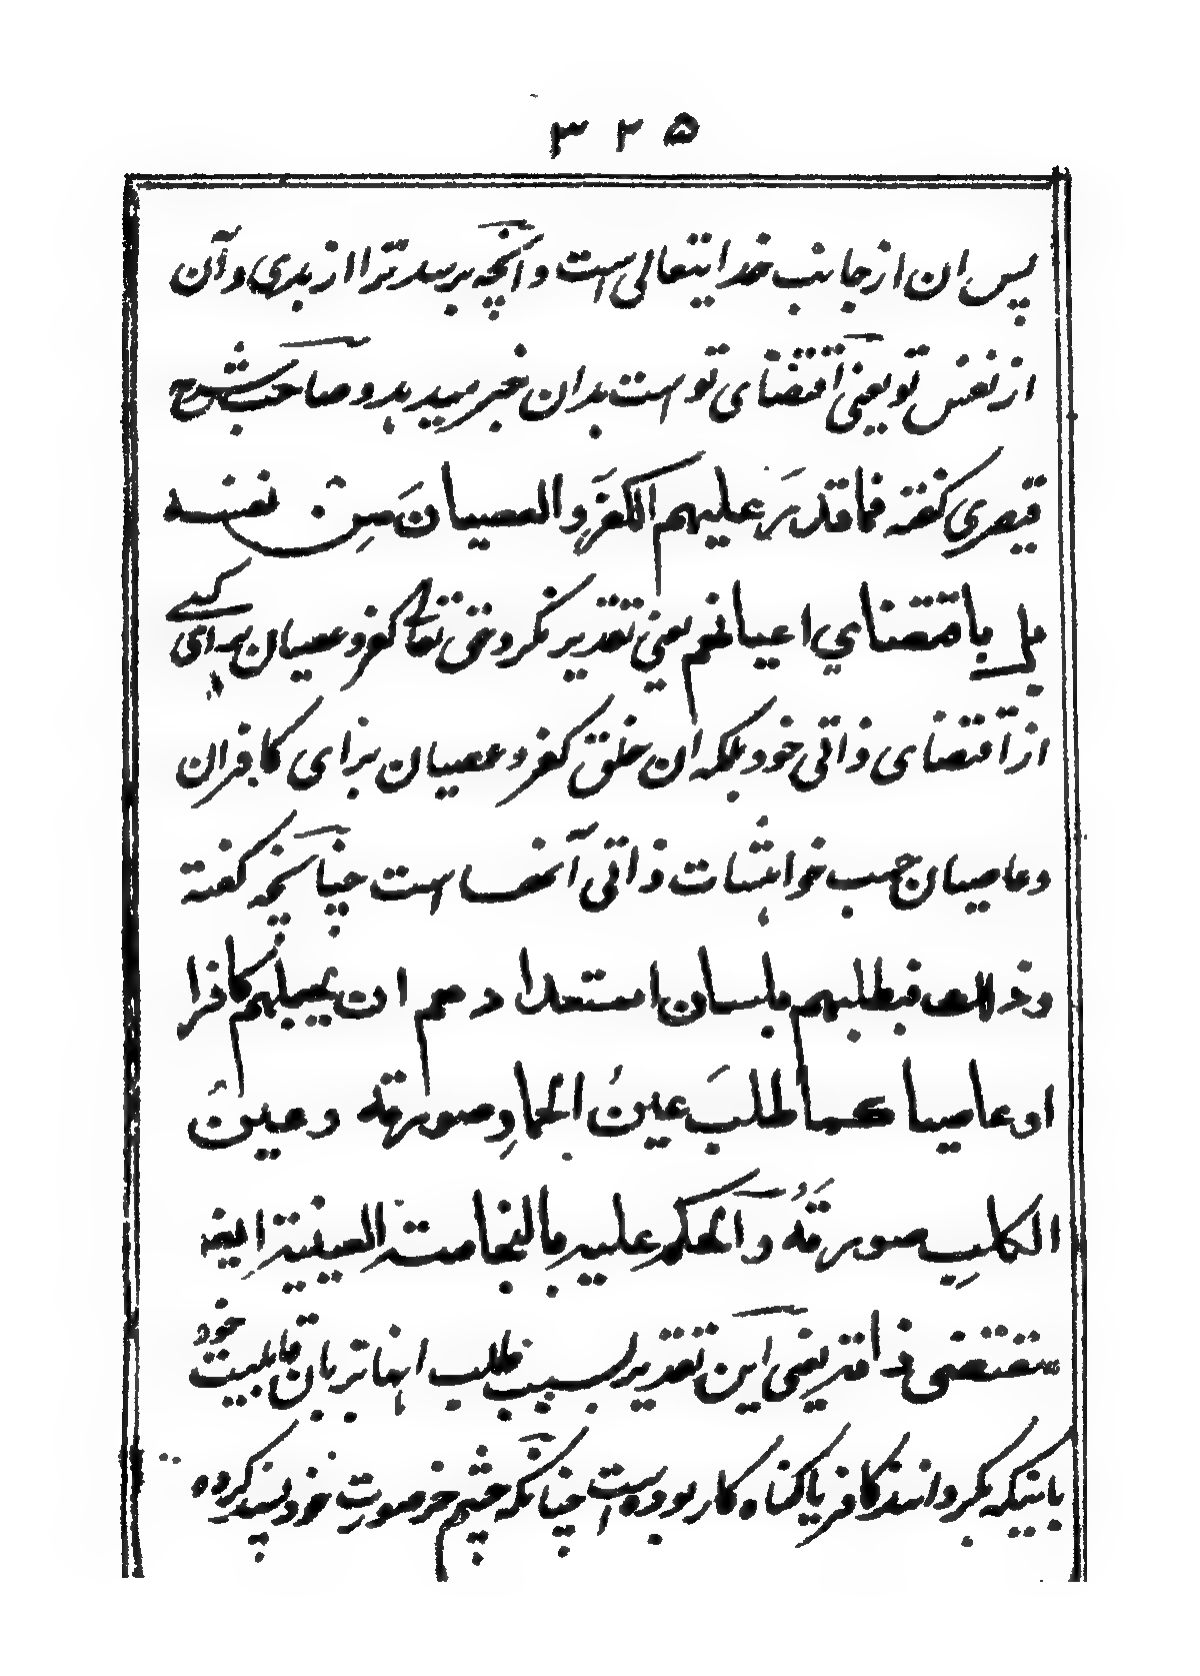 ۳۲۵
پس ان از جانب خدایتعالی است و آنچه برسد ترا از بدی و آن
از نفس تو یعنی اقتضای تو است بدان خبر میدهد و صاحب شرح
قیصری گفته فما قدر علیهم الکفر والعصیان من نفسه
بل باقتضای اعیانهم یعنی تقدیر نکرد حق تعالی کفر و عصیان برای کسے
از اقتضای ذاتی خود بلکه ان خلق کفر و عصیان برای کافران
و عاصیان حسب خواهشات ذاتی آنها است چنانچه گفته
و ذلک فبطلبهم بلسان استعدادهم ان یجعلهم کافرا
او عاصیا کما طلب عین الحمار صورته و عین
الکلب صورته والحکم علیه بالنجاست العینیة ایضا
مقتضی ذاته یعنی این تقدیر بسبب طلب انها بزبان قابلیت خود
باینکه بگردانند کافر یا گناه کار بوده است چنانکه چشم خر صورت خود پسند کرده